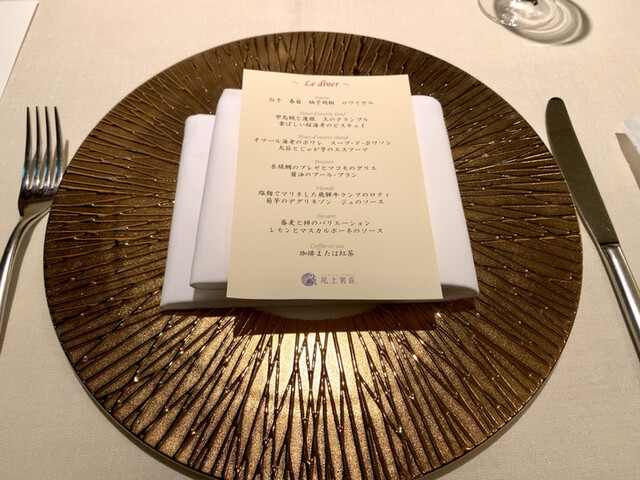 ~ Le dîner ~
春菊 柚子胡椒 ロワイヤル
Hors-d'oeuvre froid
香ばしい桜海老のビスキュイ
Hors-d'oeuvre chaud
オマール海老のポワレ スープ・ド・ポワソン
大豆とじゃが芋のエスプーマ
Poisson
糸撚鯛のブレゼとマコモのグリエ
醤油のブール・ブラン
Viande
塩麹でマリネした飛騨牛ランプのロティ
菊芋のデグリネゾン ジュのソース
Dessert
蕎麦と柿のバリエーション
レモンとマスカルポーネのソース
Coffee or tea
珈琲または紅茶
尾上別荘